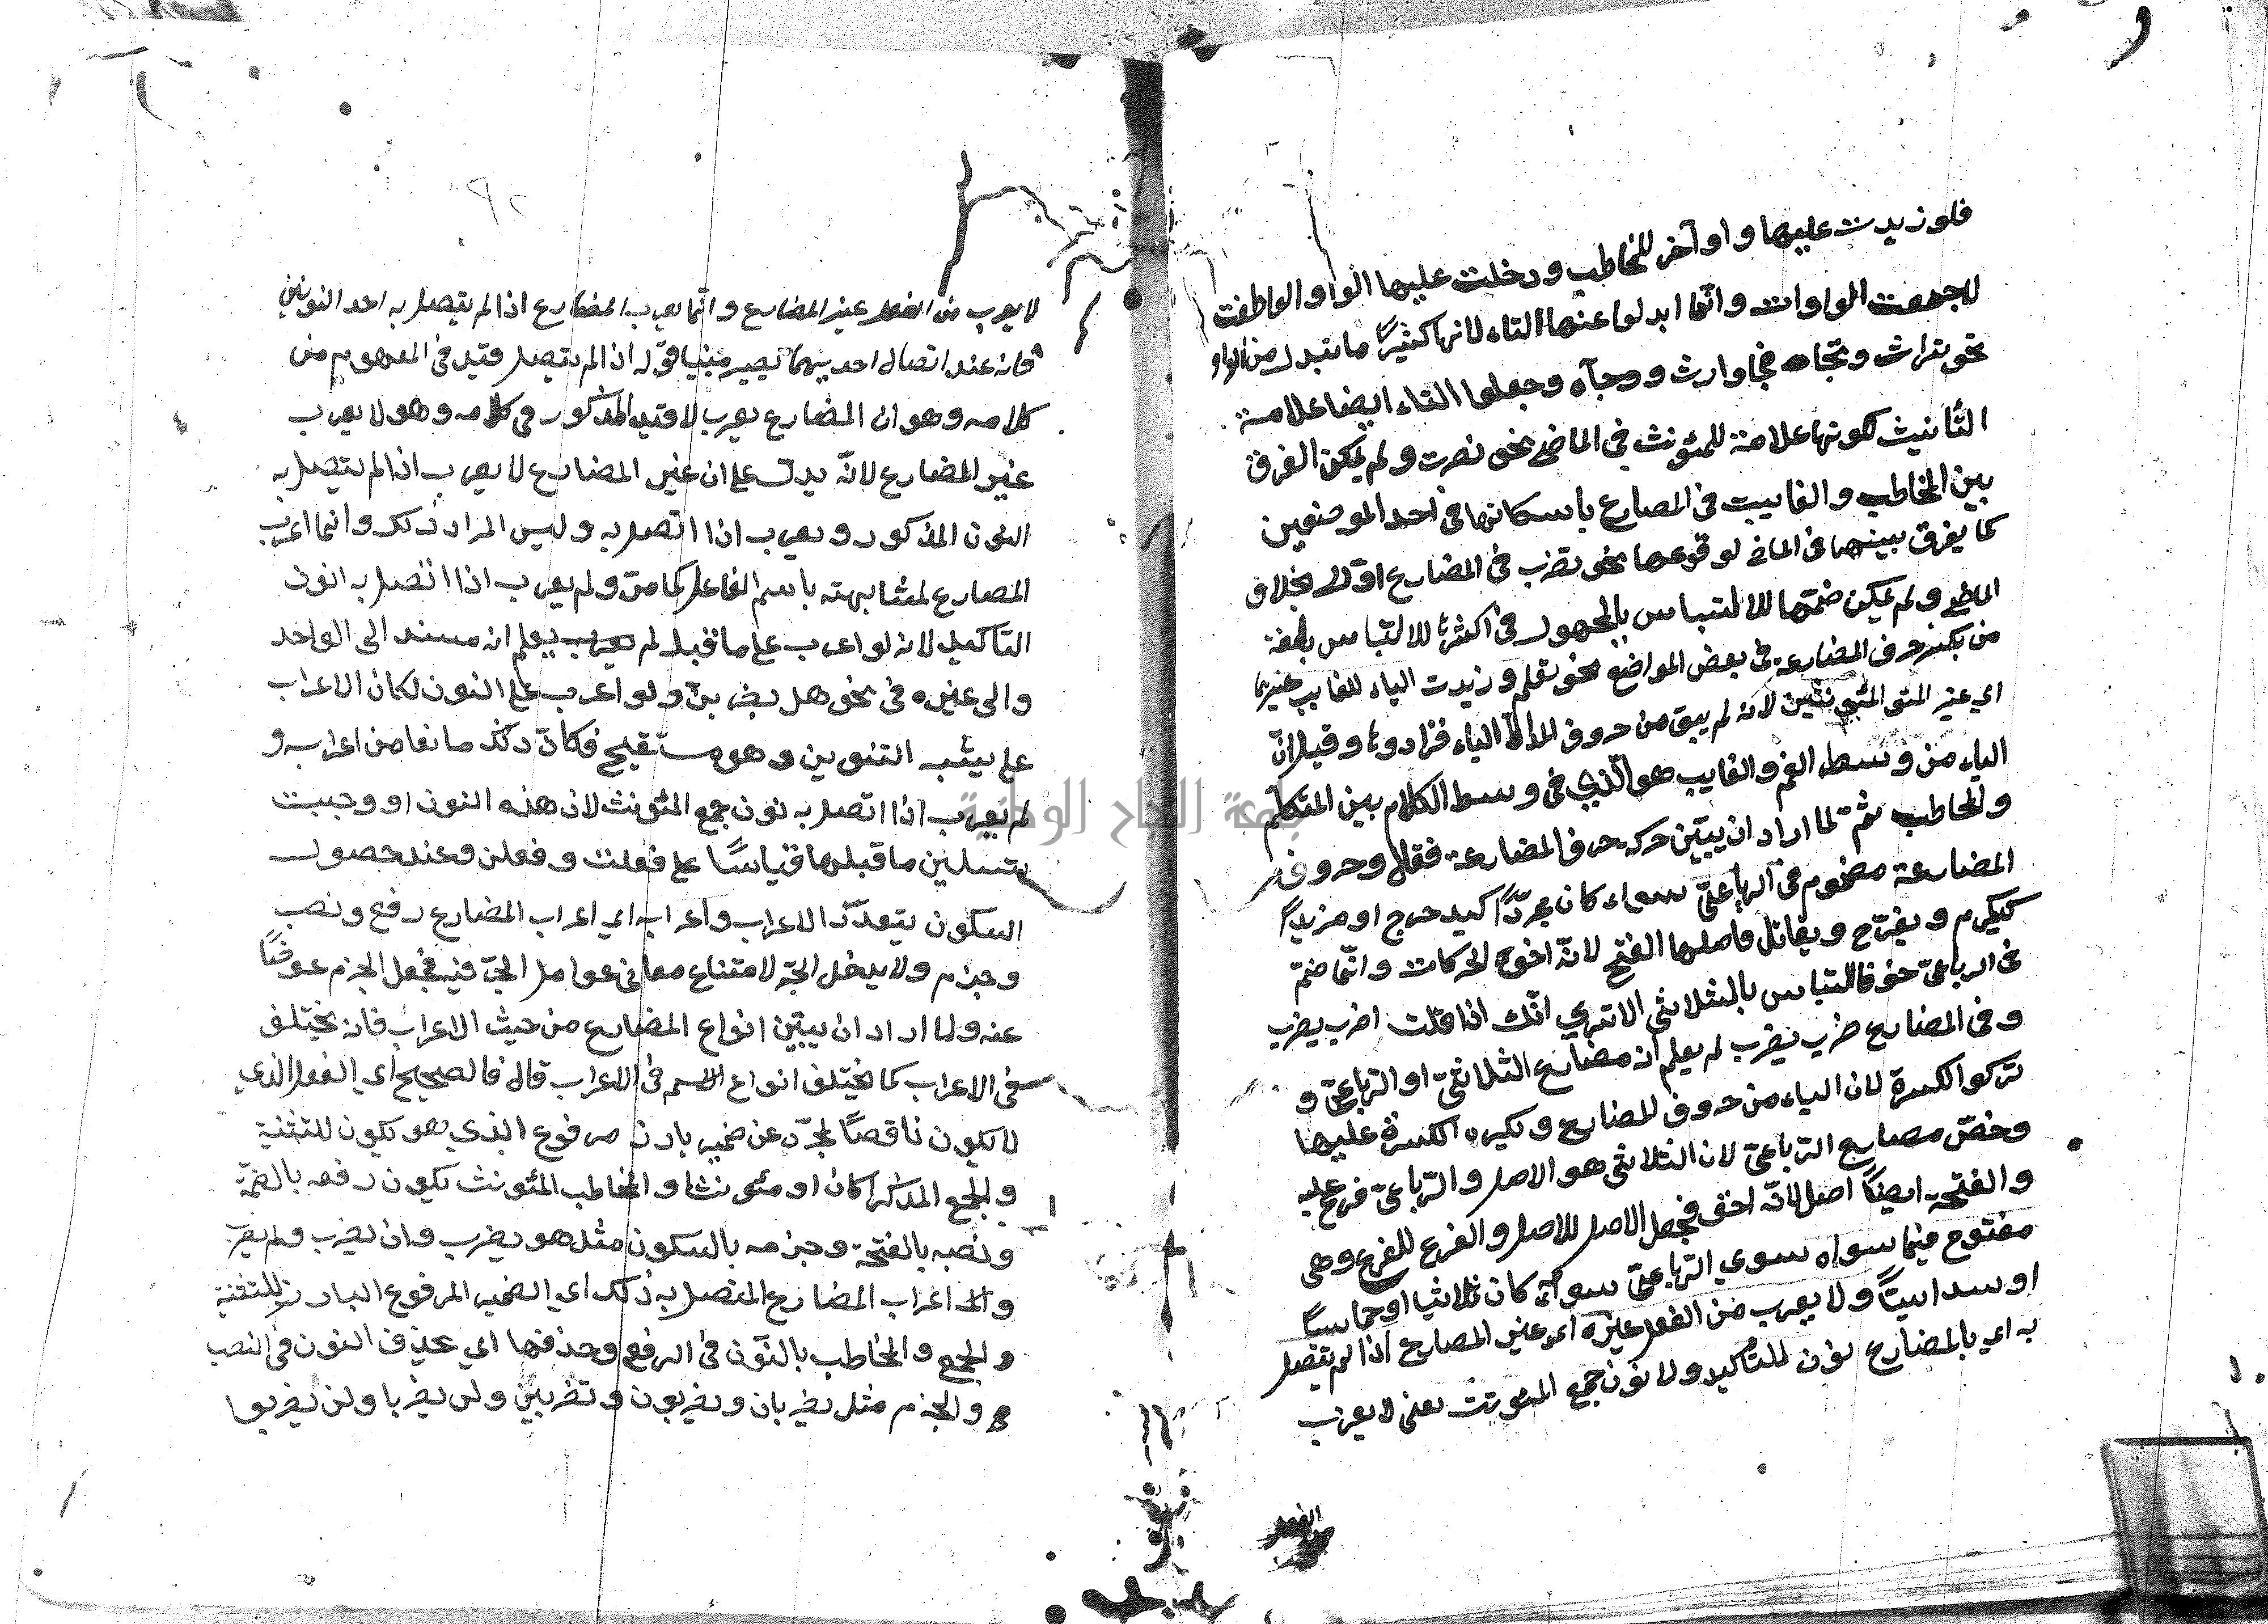 فلو زيدت عليها واو آخر للمخاطب ودخلت عليها الواو العاطفت
لاجمعت الواوات وانّما ابدلوا عنها التاء لانها كثيرًا ما تبدل من الواو
نحو تراث وتجاه في وارث ووجاه وجعلوا التاء ايضا علامة
التأنيث لكونها علامة للمئونث في الماضي نحو نصرت ولم يمكن الفرق
بين المخاطب والغايبت في المضارع باسكانها في احد الموضعين
كما يفرق بينهما في الماضي لوقوعها نحو تضرب في المضارع اوّلا بخلاف
الماضي ولم يمكن ضمتها للالتباس بالمجهول في اكثرها للالتباس بلغة
من يكسر حرف المضارعة في بعض المواضع نحو تعلم وزيدت الياء للغايب غيرهما
اي غير المئونثين لانه لم يبق من حروف المد الا الياء فزادوها وقيل انّ
الياء من وسط الفم والغايب هو الّذي في وسط الكلام بين المتكلّم
والمخاطب ثم لما اراد ان يبيّن حركة حرف المضارعة فقال وحروف
المضارعة مضموم في الرباعيّ سواء كان مجردًا كيدحرج او مزيدًا
كيكرم ويفرّح ويقاتل فاصلها الفتح لانّه اخف الحركات وانّما ضمّ
في الرباعيّ خوفا التباس بالثلاثي الا تري انّك اذا قلت اضرب يضرب
وفي المضارع ضرب يضرب لم يعلم انه مضارع الثلاثيّ او الرّباعيّ و
تركوا الكسرة لان الياء من حروف المضارع وتكره الكسرة عليها
وخصّ مضارع الرّباعيّ لان الثلاثي هو الاصل والرّباعيّ فرع عليه
والفتحة ايضًا اصل لانّه اخف فجعل الاصل للاصل والفرع للفرع وهي
مفتوح فيما سواه سوي الرّباعيّ سواء كان ثلاثيا او خماسيًا
او سداسيًا ولا يعرب من الفعل غيره اي غير المضارع اذا لم يتصل
به اي بالمضارع نون للتأكيد ولا نون جمع المئونث يعني لا يعرب
لا يعرب من الفعل غير المضارع وانّما يعرب المضارع اذا لم يتصل به احد النونين
فانه عند اتصال احديهما يصير مبنيا قوله اذا لم يتصل قيد في المفهوم من
كلامه وهو ان المضارع يعرب لا قيد المذكور في كلامه وهو لا يعرب
غير المضارع لانّه يدل على ان غير المضارع لا يعرب اذا لم يتصل به
النون المذكور ويعرب اذا اتصل به وليس المراد ذلك وانما اعرب
المضارع لمشابهته باسم الفاعل كما مرّ ولم يعرب اذا اتصل به نون
التاكيد لانه لو اعرب على ما قبله لم يعلم انه مسند الى الواحد
والى غيره في نحو هل يضربنّ ولو اعرب على النون لكان الاعراب
على يشبه التنوين وهو مستقبح فكانّ ذلك مانعا من اعرابه و
لم يعرب اذا اتصل به نون جمع المئونث لان هذه النون اوجبت
تسكين ما قبلها قياسًا على فعلت وفعلن وعند حصول
السكون يتعذّر الاعراب واعرابه اي اعراب المضارع رفع ونصب
وجزم ولا يدخل الجرّ لامتناع معاني عوامل الجرّ فيه فجعل الجزم عوضًا
عنه ولما اراد ان يبيّن انواع المضارع من حيث الاعراب فانه يختلف
في الاعراب كما يختلف انواع الاسم في الاعراب قال فالصحيح اي الفعل الذي
لا يكون ناقصًا المجرّد عن ضمير بارز مرفوع الذي هو يكون للتثنية
والجمع المذكر كان او مئونثا والمخاطب المئونث يكون رفعه بالضمّة
ونصبه بالفتحة وجزمه بالسكون مثل هو يضرب وان يضرب ولم يضرب
واما اعراب المضارع المتصل به ذلك اي الضمير المرفوع البارز للتثنية
والجمع والمخاطب بالنون في الرفع وحذفها اي بحذف النون في النصب
والجزم مثل يضربان ويضربون وتضربين ولن يضربا ولن يضربوا
جامعة النجاح الوطنية